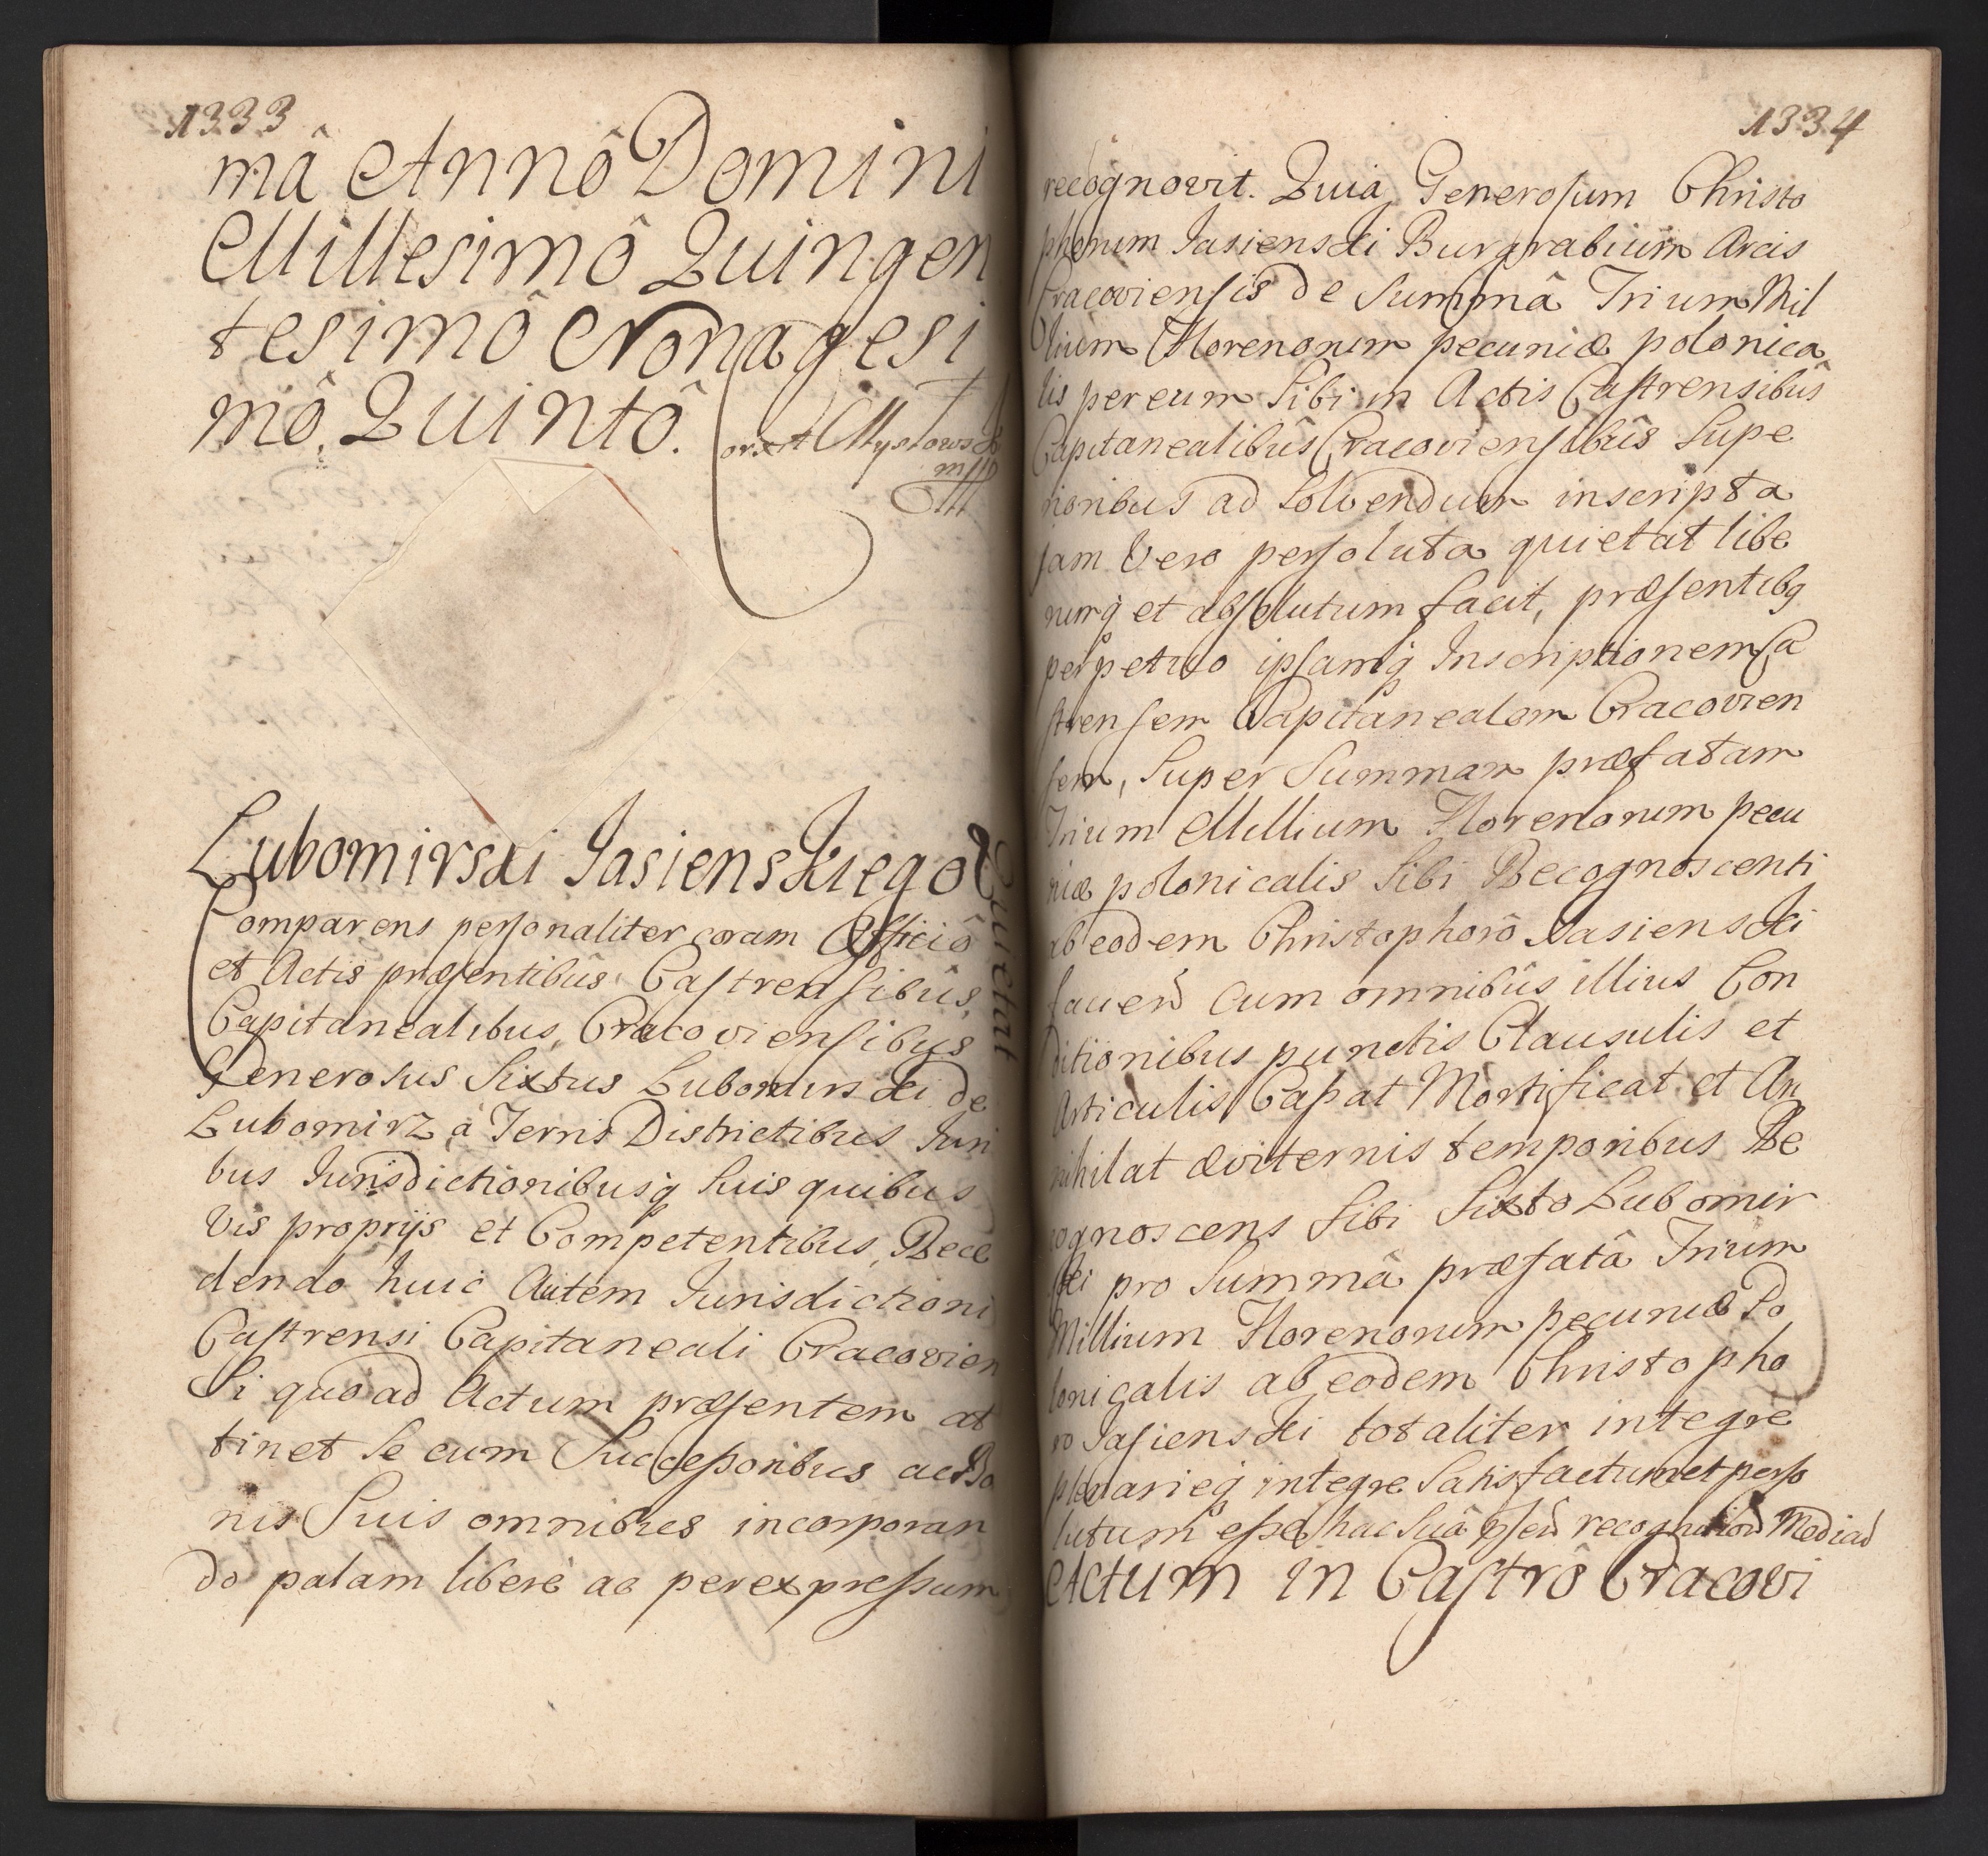 1333
mâ Annô Domini
Millesimô Quingen
tesimô Nonagesi
mô Quintô.
mpp
Lubomirski Jasienskiego
Quietat
Comparens personaliter coram Officiô
et Actis præsentibûs Castrensibûs,
Capitanealibus, Cracoviensibus
Generosus Sixtus Lubomirski de
Lubomirz à Terris Districtibus Iuri
bus Iurisdictionibusq suis quibus
vis proprijs et Competentibus, Rece
dendo huic Autem Iurisdictioni
Castrensi Capitaneali Cracovien
si quo ad Actum præsentem at
tinet se cum Successoribus ac Bo
nis Suis omnibus incorporan
do palam liberè ac per expressum
1334
recognovit. Quia Generosum Christo
phorum Jasienski Burgrabium Arcis
Cracoviensis de Summâ Trium Mil
lium Florenorum pecuniæ polonica
lis per eum Sibi in Actis Castrensibûs
Capitanealibûs Cracoviensibûs Supe
rioribus ad Solvendum inscripta
jam vero persoluta quietat libe
rumq et absolutum facit, præsentibq
perpetuo ipsamq Inscriptionem Ca
strensem Capitanealem Cracovien
sem, Super Summam præfatam
Trium Millium Florenorum pecu
niæ polonicalis Sibi Recognoscenti
ab eodem Christophorô Jasienski
faueñ cum omnibûs illius Con
ditionibus punctis Clausulis et
Articulis Cassat Mortificat et An
nihilat æviternis temporibus Re
cognoscens Sibi Sixto Lubomir
ski pro Summâ præfatâ Trium
Millium Florenorum pecuniæ Po
lonicalis ab eodem Christopho
ro Jasienski totaliter integre
plenarieq integre Satisfactum et perso
lutum esse hac Suâ pseñ recognitioñ Mediañ
Actum in Castrô Cracovi